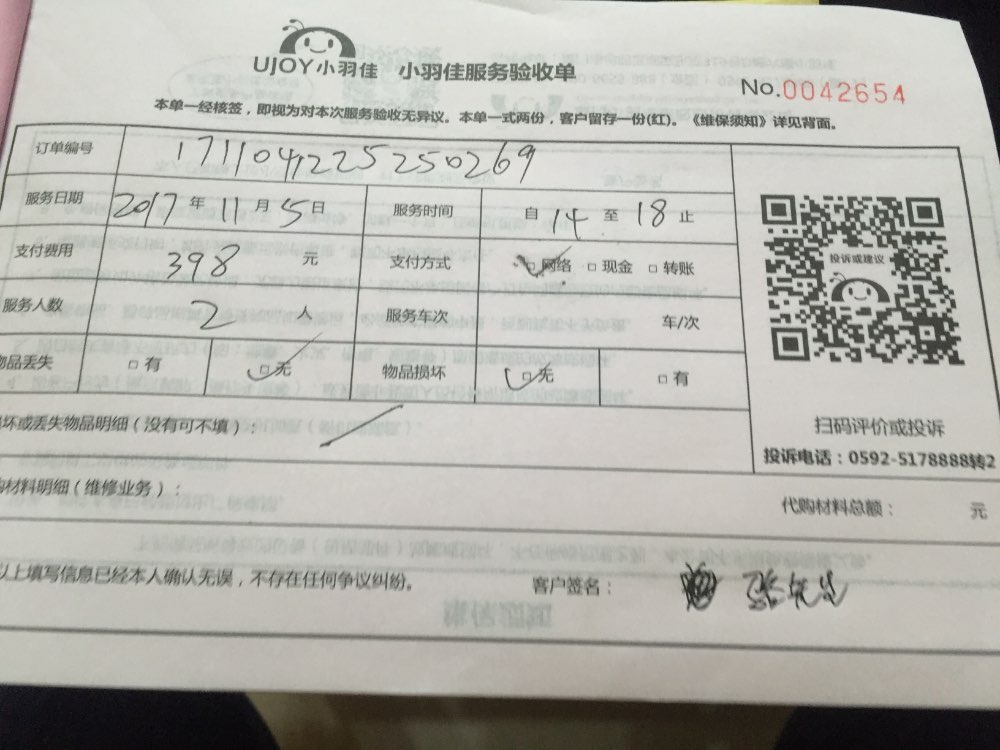 UJOY小羽佳 小羽佳服务验收单
No.0042654
本单一经核签，即视为对本次服务验收无异议。本单一式两份，客户留存一份(红)。《维保须知》详见背面。
订单编号 171104225250269
服务日期 2017年11月5日 服务时间 自14至18止
支付费用 398元 支付方式 □网络 □现金 □转账
服务人数 2人 服务车次 车/次
物品丢失 □有 □无 物品损坏 □无 □有
坏或丢失物品明细（没有可不填）：
购材料明细（维修业务）： 代购材料总额： 元
投诉或建议
扫码评价或投诉
投诉电话：0592-5178888转2
以上填写信息已经本人确认无误，不存在任何争议纠纷。 客户签名： 张先生